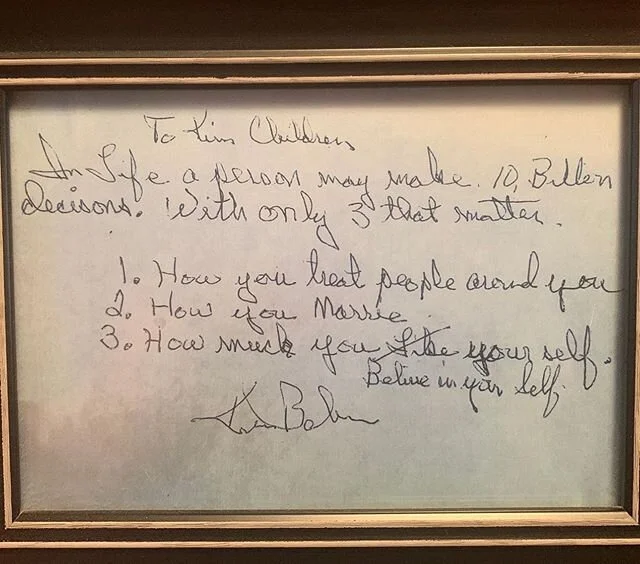 To Kim Children
In Life a person may make. 10, Billion
decisons. With only 3 that matter.
1. How you treat people around you
2. How you Marrie
3. How much you Like your self.
Belive in your Self.
Kim